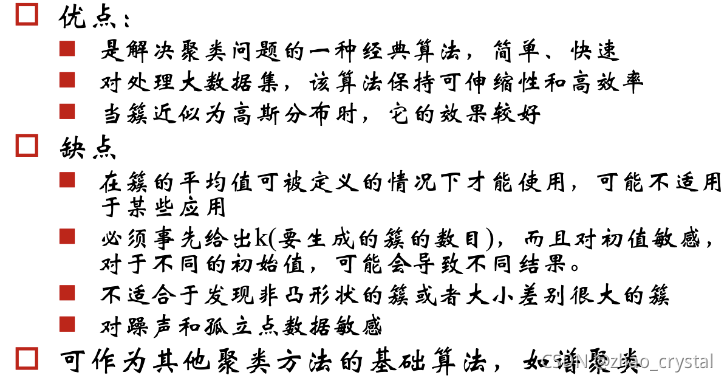 优点：
是解决聚类问题的一种经典算法，简单、快速
对处理大数据集，该算法保持可伸缩性和高效率
当簇近似为高斯分布时，它的效果较好
缺点
在簇的平均值可被定义的情况下才能使用，可能不适用
于某些应用
必须事先给出k(要生成的簇的数目)，而且对初值敏感，
对于不同的初始值，可能会导致不同结果。
不适合于发现非凸形状的簇或者大小差别很大的簇
对躁声和孤立点数据敏感
可作为其他聚类方法的基础算法，如谱聚类
CSDN @zhao_crystal